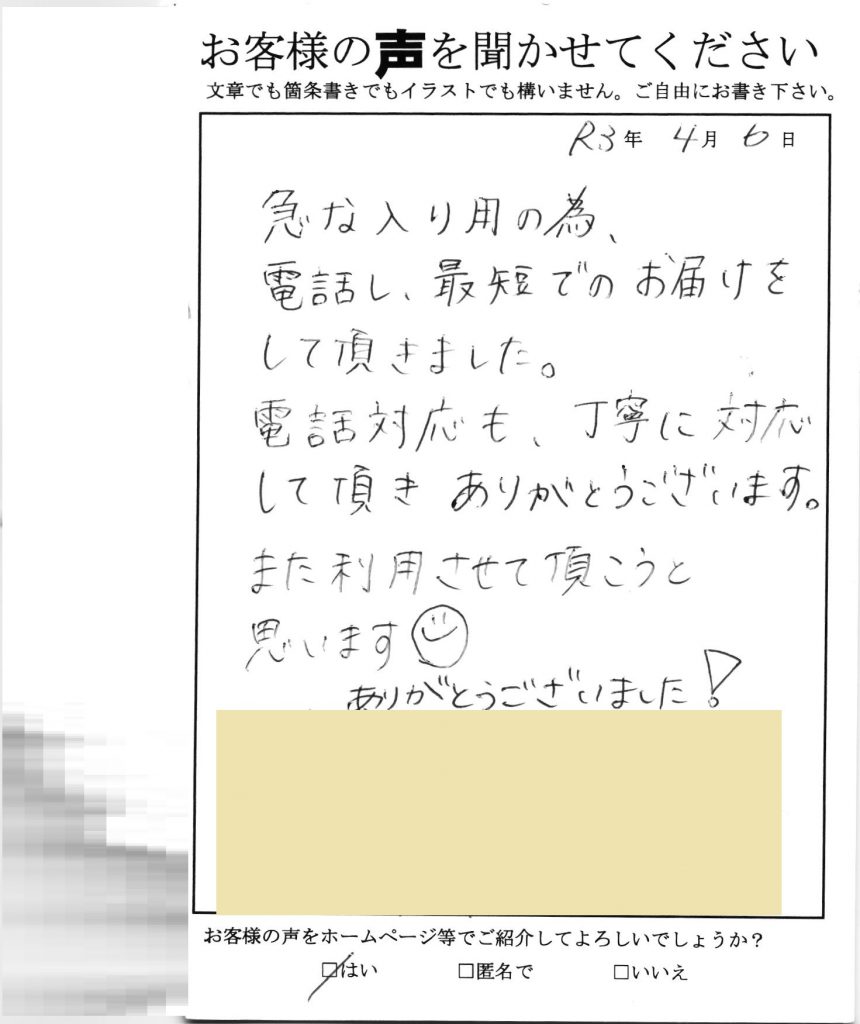 お客様の声を聞かせてください
文章でも箇条書きでもイラストでも構いません。ご自由にお書き下さい。
R3年 4月 6日
急な入り用の為、
電話し、最短でのお届けを
して頂きました。
電話対応も、丁寧に対応
して頂き ありがとうございます。
また利用させて頂こうと
思います
ありがとうございました!
お客様の声をホームページ等でご紹介してよろしいでしょうか?
□はい □匿名で □いいえ